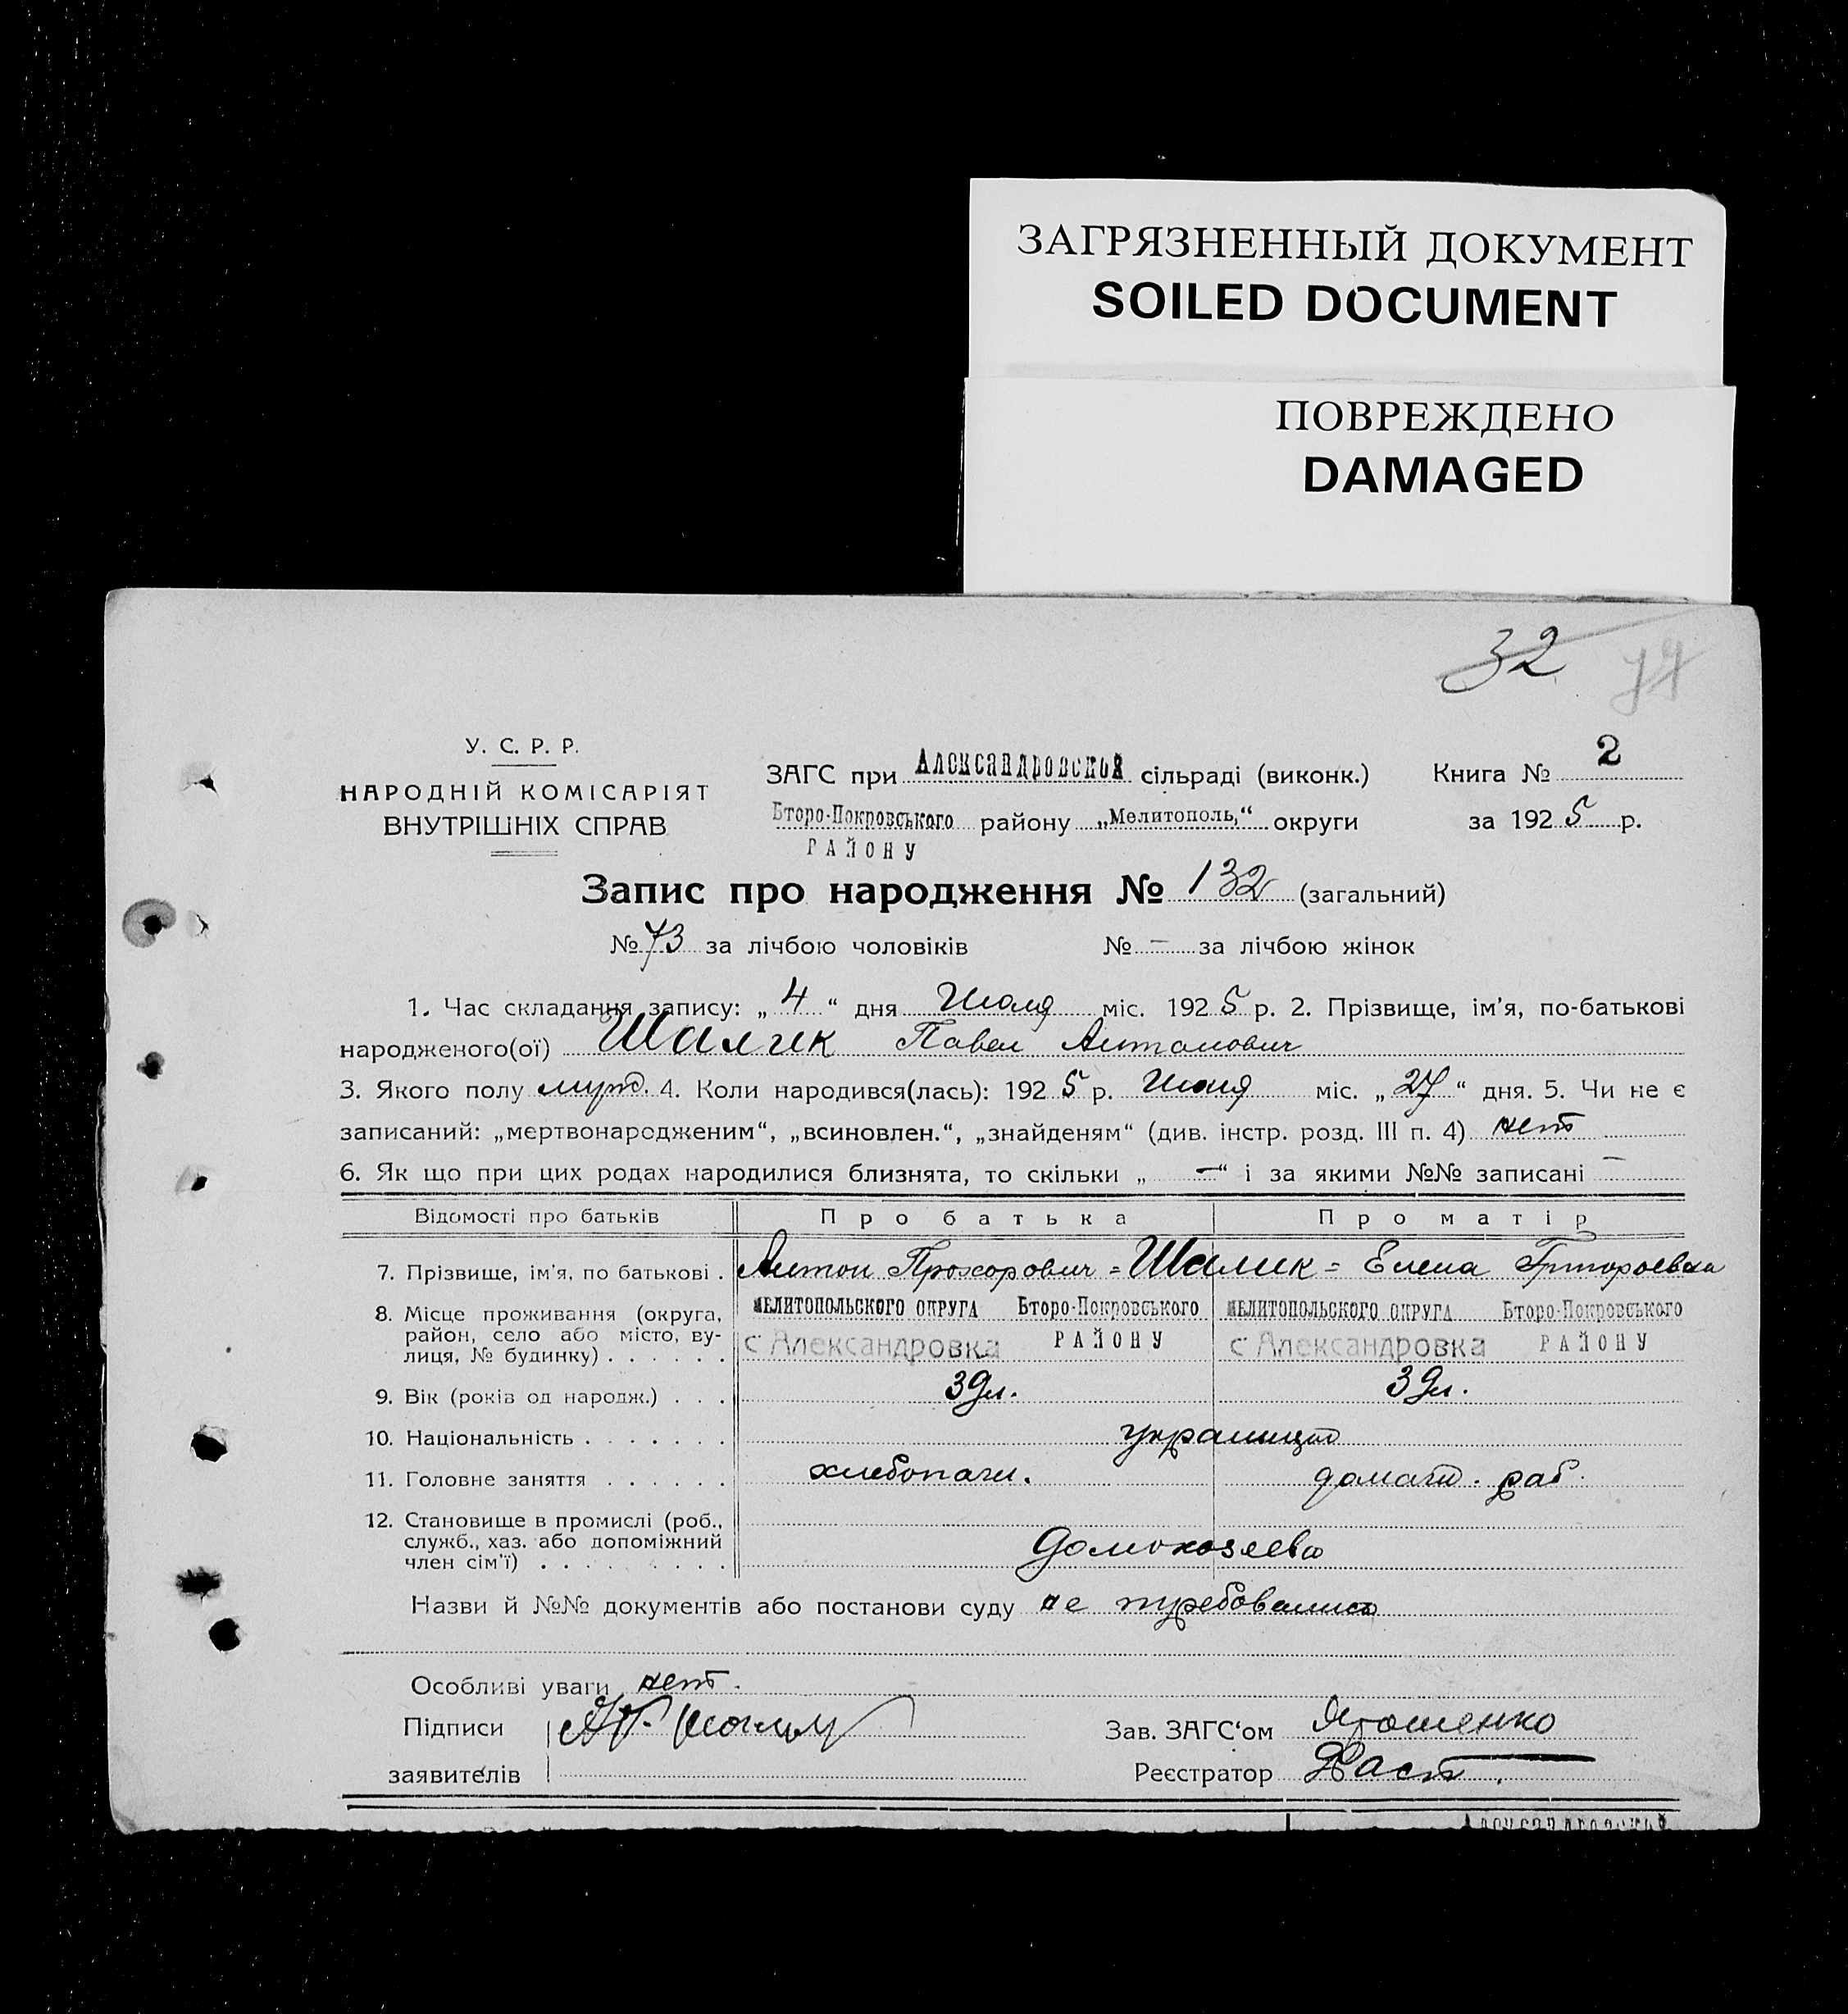 ЗАГРЯЗНЕННЫЙ ДОКУМЕНТ
SOILED DOCUMENT
ПОВРЕЖДЕНО
DAMAGED
32
У. С. Р. Р.
НАРОДНІЙ КОМІСАРІЯТ
ВНУТРІШНІХ СПРАВ
ЗАГС при Александровской сільраді (виконк.) Книга № 2
Второ-Покровського району „Мелитополь,“ округи за 1925 р.
РАЙОНУ
Запис про народження № 132 (загальний)
№ 73 за лічбою чоловіків № – за лічбою жінок
1. Час складання запису: „4“ дня Июля міс. 1925 р. 2. Прізвище, ім’я, по-батькові
народженого(ої) Шалик Павел Антонович
3. Якого полу муж. 4. Коли народився(лась): 1925 р. міс. „27“ дня. 5. Чи не є
записаний: „мертвонародженим“, „всиновлен.“, „знайденям“ (див. інстр. розд. III п. 4) нет
6. Як що при цих родах народилися близнята, то скільки „ –“ і за якими №№ записані –
Відомості про батьків Про батька Про матір
7. Прізвище, ім’я, по батькові . Антон Прохорович = Шалик = Елена Григоревна
8. Місце проживання (округа, район, село або місто, вулиця, № будинку) . . . . . .
МЕЛИТОПОЛЬСКОГО ОКРУГА Второ-Покровського МЕЛИТОПОЛЬСКОГО ОКРУГА Второ-Покровського
с Александровка РАЙОНУ с Александровка РАЙОНУ
9. Вік (років од народж.) . . . 39 л. 39 л.
10. Національність . . . . . . . украинцы
11. Головне заняття . . . . . . хлебопаш. домаш. раб.
12. Становище в промислі (роб., служб., хаз. або допоміжний член сім’ї) . . . . . . . . .
Домохозяева
Назви й №№ документів або постанови суду не требовались
Особливі уваги нет.
Підписи Зав. ЗАГС‘ом
заявителів Реєстратор
Александровской